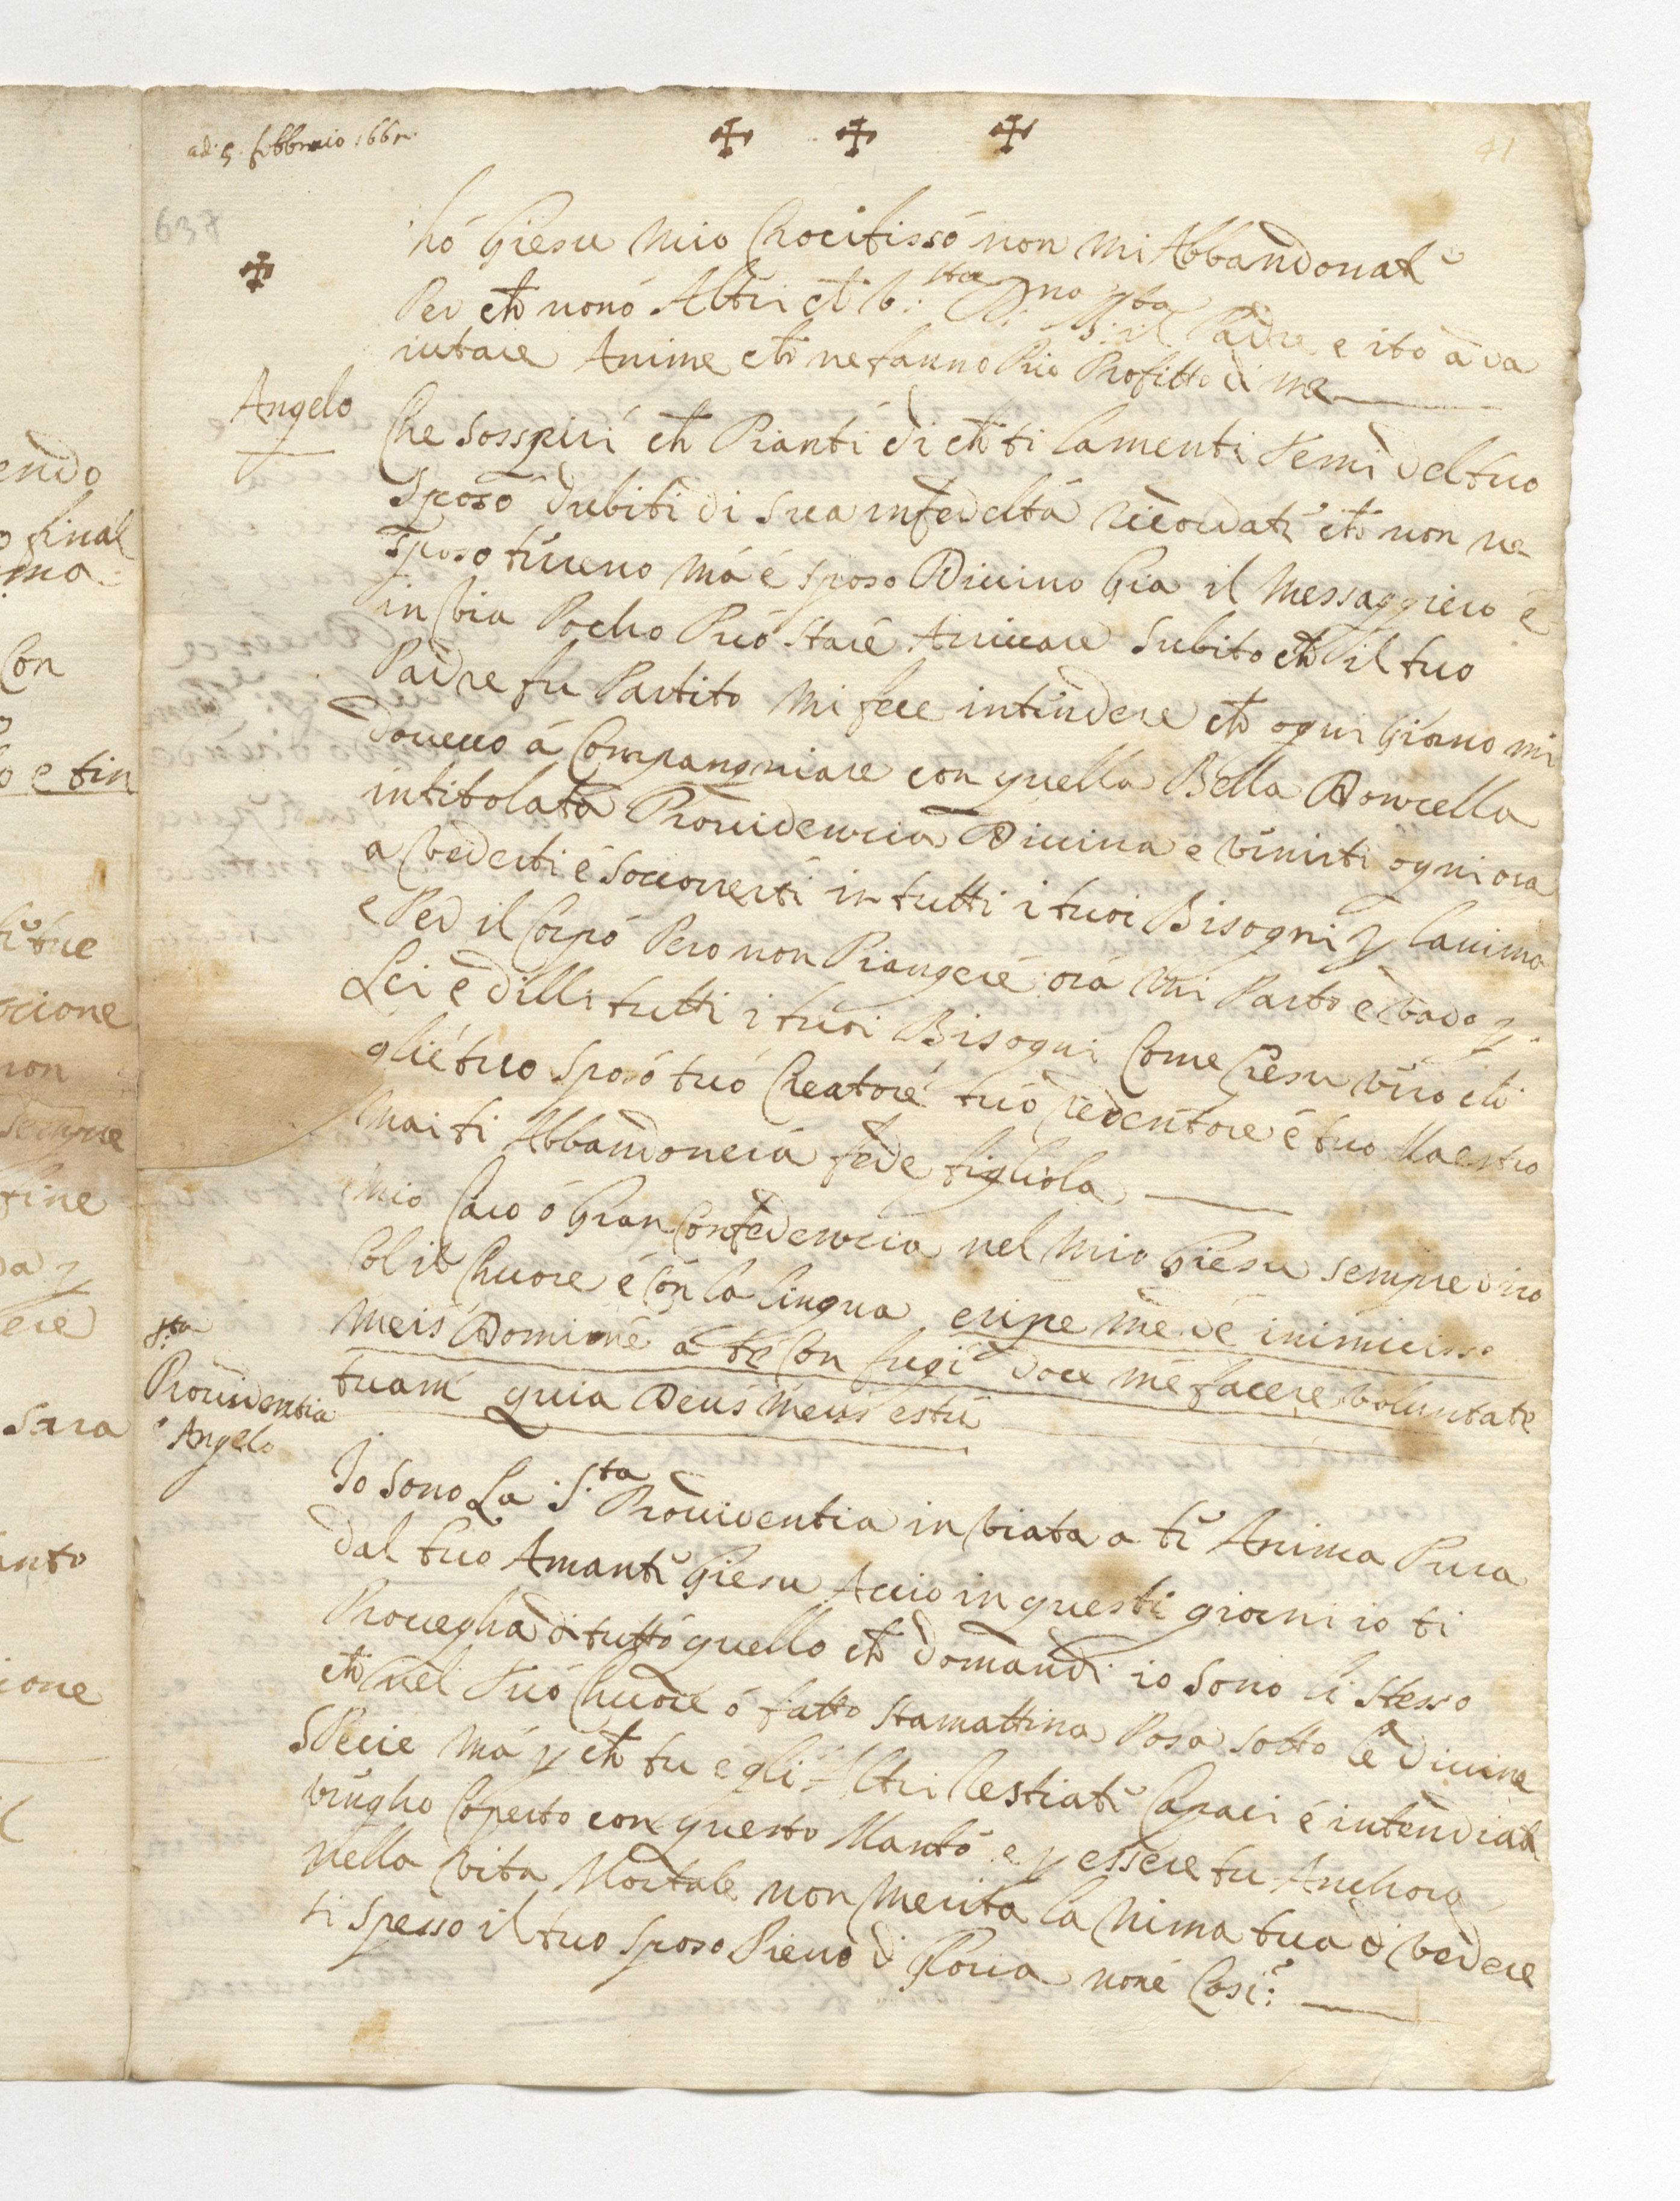 ad: 5. febbraio 166
41
637
hó Giesu mio Crocifissó non mi Abbandonate
Per che nonó Altri che il Padre e ito à va
iutare Anime che ne fanno Piu Profitto di me
Angelo
Che Sosspiri che Pianti di che ti lamenti temi del tuo
Sposo dubiti di Sua infedeltá ricordati che non ne
sposo tireno má é sposo Diuino Gia il Messaggiero é
in via Pocho Puó Stare Ariuare Subito che il tuo
Padre fu Partito Mi fece intindere che ogni Giorno mi
douesso á Compangniare con quella Bella Doncella
intitolata Prouidencia Diuina e vinirti ogni ora
a vederti é Soccorrerti in tutti i tuoi Bisogni p lanima
e Per il Corpó Pero non Piangere orá mi Parto e vado p
Lei e dilli tutti i tuoi Bisogni Come Giesu viro che
glié tuo Sposó tuó Creatoré tuó redentore é tuo Maestro
mai ti Abbandonerá fede figliola
mio Caro ó Gran Confedencia nel mio Giesu sempre diro
Col il Chuore é Con la lingua eripe me de inimicisse
meis Domine á te Con fugi doce me facere voluntate
tuam quia Deus meus es tu
S.ta
Prouidentia
Angelo
Io Sono La S.ta Prouidentia in viata a ti Anima Pura
dal tuo Amanti Giesu Accio in questi giorni io ti
Proueghá di tuttó quello che domandi io Sono li stesso
che nel tuó Chuore ó fatto Stamattina Posa sotto le diuine
SPecie má p che tu e gli Altri restiati Capaci é intendiate
vengho Coperto con questo Mantó e p essere tu Anchora
nella vita Mortale non Merita la nima tua di vedere
ti spesso il tuo sposo Pieno di Gloria noné Cosi:
endo
o final
ima
Con
o e fin
ti tue
ocione
non
Sempre
fine
da p
ere
Sara
anto
ione